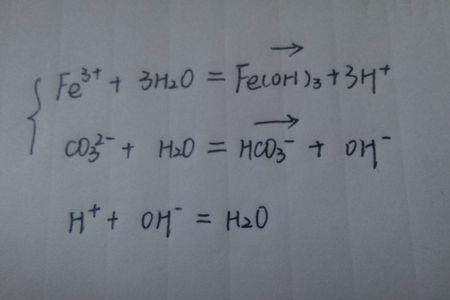 Fe³⁺ + 3H₂O = Fe(OH)₃ + 3H⁺
CO₃²⁻ + H₂O = HCO₃⁻ + OH⁻
H⁺ + OH⁻ = H₂O